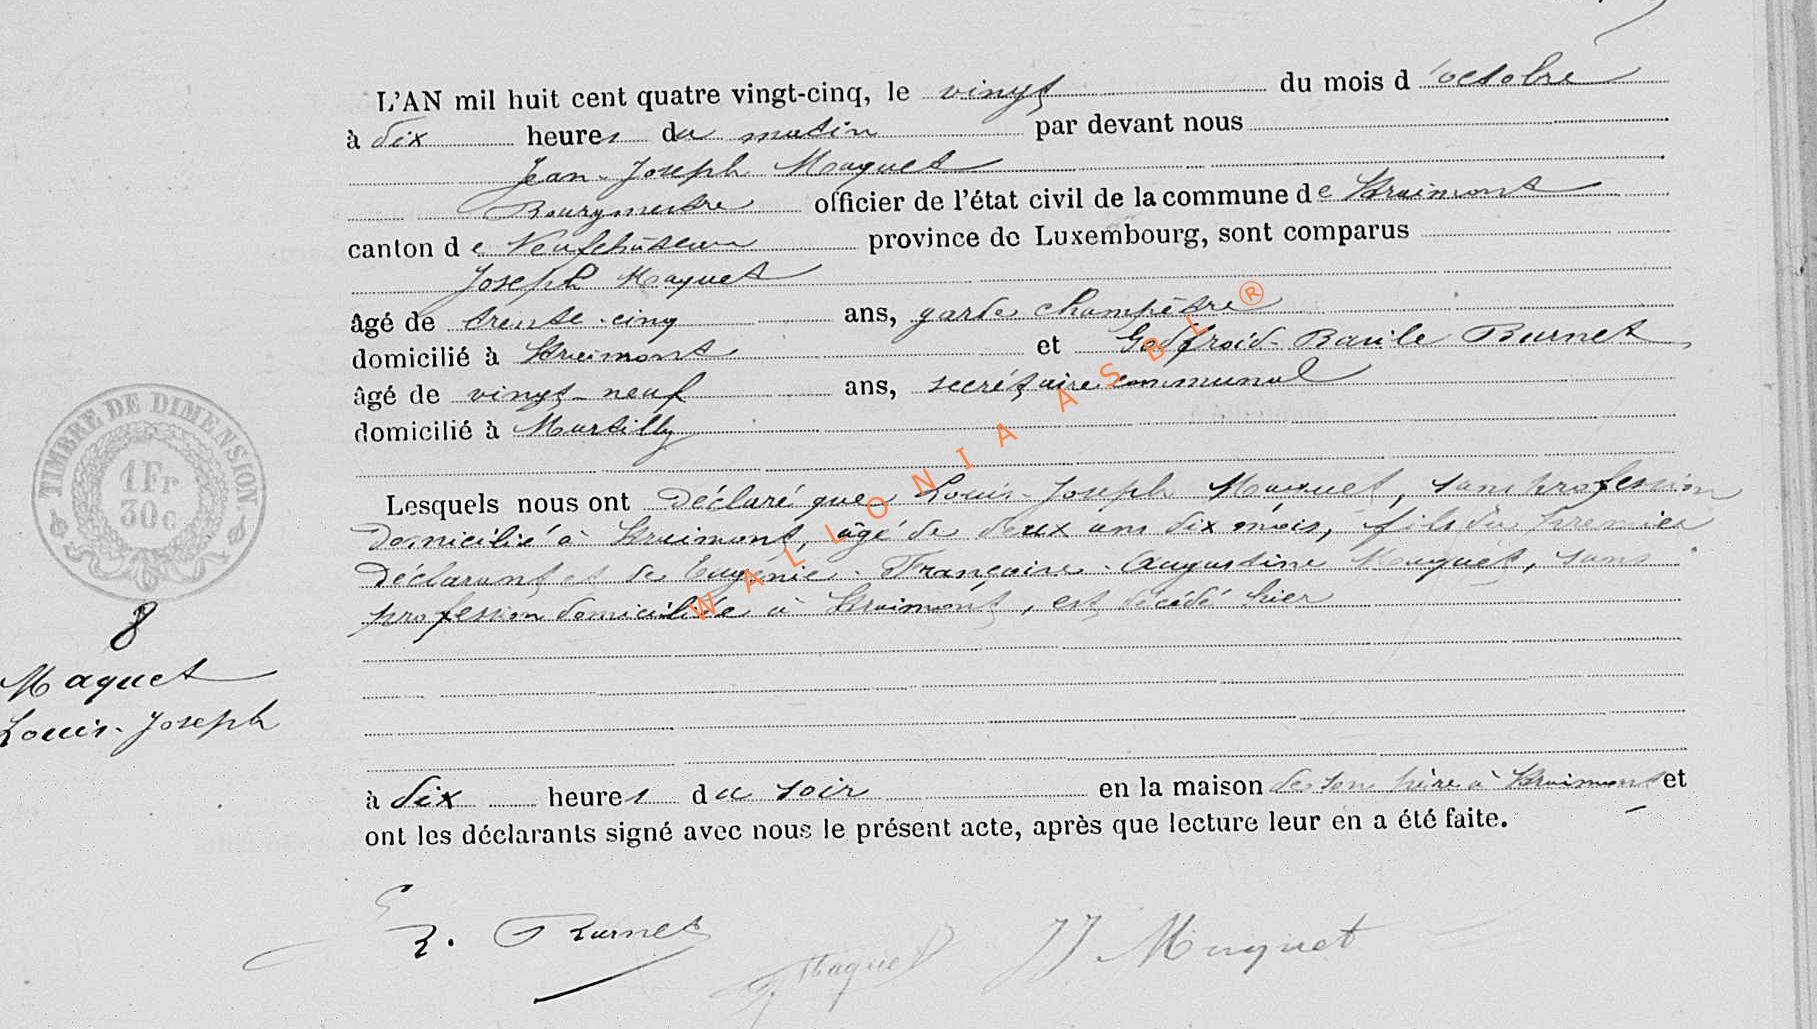 L'AN mil huit cent quatre vingt-cinq, le vingt du mois d'octobre
à dix heures du matin par devant nous
Jean-Joseph Maquet
Bourgmestre officier de l'état civil de la commune de Straimont
canton de Neufchâteau province de Luxembourg, sont comparus
Joseph Maquet
âgé de trente-cinq ans, garde champêtre
domicilié à Straimont et Godfroid-Basile Burnet
âgé de vingt-neuf ans, secrétaire communal
domicilié à Martilly
Lesquels nous ont déclaré que Louis-Joseph Maquet, sans profession
domicilié à Straimont, âgé de deux ans dix mois, fils du premier
déclarant et de Eugénie-Françoise-Augustine Maquet, sans
profession domiciliée à Straimont, est décédé hier
TIMBRE DE DIMENSION
1 Fr
30c
8
Maquet
Louis-Joseph
à dix heures du soir en la maison de son père à Straimont et
ont les déclarants signé avec nous le présent acte, après que lecture leur en a été faite.
Burnet Maquet JJ Maquet
WALLONIA ASBL ®